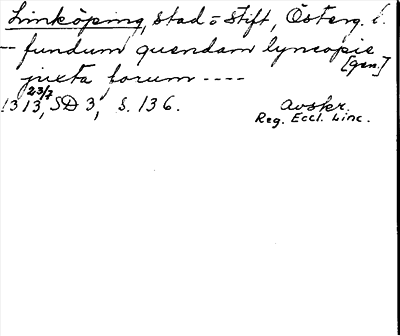 Linköping, stad o Stift, Österg. l.
-- fundum quendam lyncopie
[gen]
juxta forum ----
1313 23/7, SD 3, s. 136.
Avskr.
Reg. Eccl. Linc.